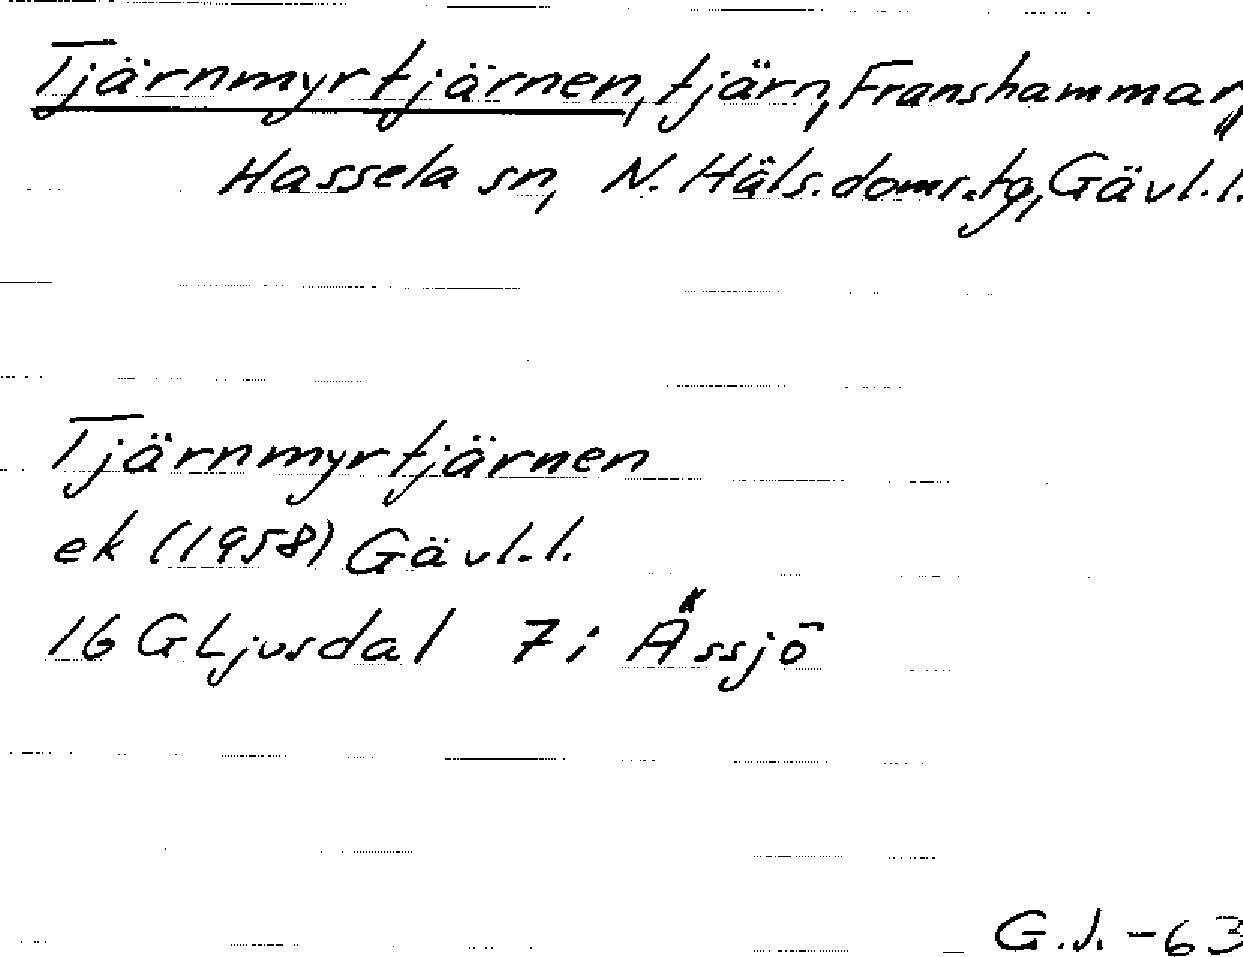 Tjärnmyrtjärnen, tjärn, Franshammar,
Hassela sn, N. Häls. doms.tg, Gävl.l.
Tjärnmyrtjärnen
ek (1958) Gävl.l.
16 G Ljusdal 7 i Ässjö
G.J. -63